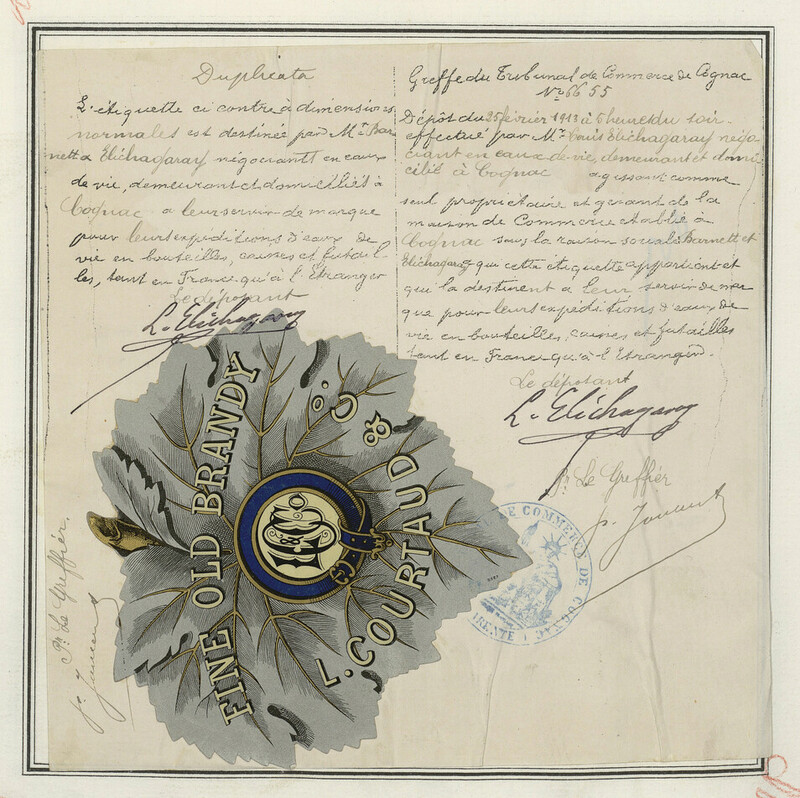 Duplicata
L'étiquette ci contre à dimensions
normales est destinée par Mrs Bar
nett & Elichagaray négociants en eaux
de vie, demeurant et domiciliés à
Cognac a leur servir de marque
pour leurs expéditions d'eaux de
vie en bouteilles, caisses et futail
les, tant en France qu'à l'Etranger
Le déposant
L. Elichagaray
Greffe du Tribunal de Commerce de Cognac
No 6655
Dépôt du 25 février 1913 à 5 heures du soir
effectué par Mr Louis Elichagaray négo
ciant en eaux de vie, demeurant et domi
cilié à Cognac agissant comme
seul propriétaire et gérant de la
maison de Commerce établie à
Cognac sous la raison sociale Barnett et
Elichagaray qui cette étiquette appartient et
qui la destinent a leur servir de mar
que pour leurs expéditions d'eaux de
vie en bouteilles, caisses et futailles
tant en France qu'à l'Etranger.
Le déposant
L. Elichagaray
Pr Le Greffier
FINE OLD BRANDY
L. COURTAUD & Co.
DE COMMERCE DE COGNAC
Pr Le Greffier.